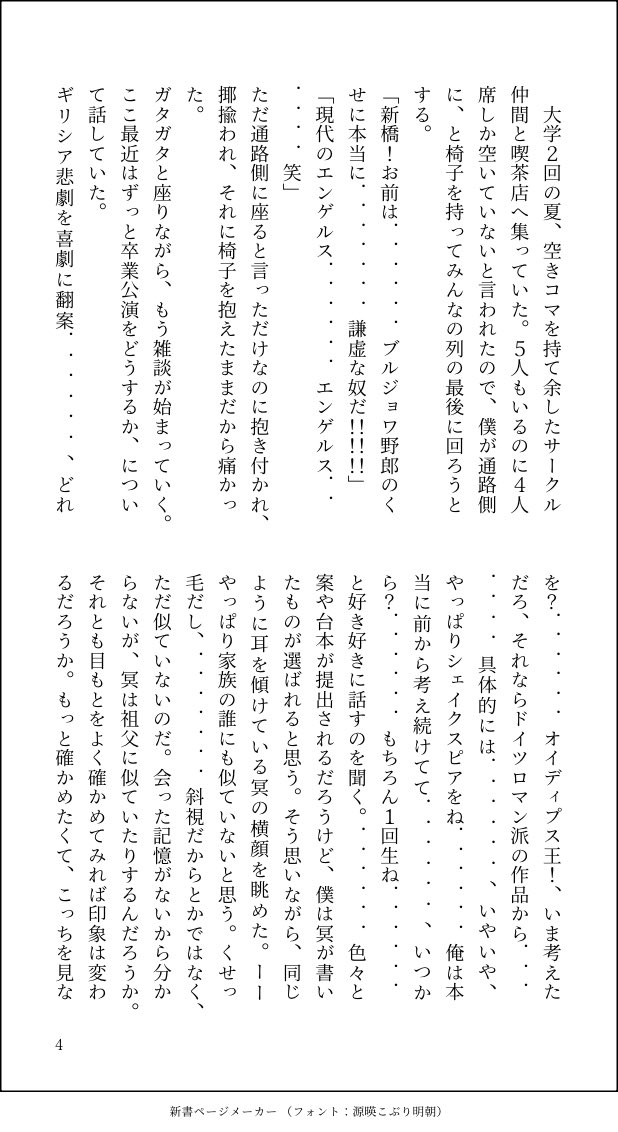 大学２回の夏、空きコマを持て余したサークル
仲間と喫茶店へ集っていた。５人もいるのに４人
席しか空いていないと言われたので、僕が通路側
に、と椅子を持ってみんなの列の最後に回ろうと
する。
「新橋！お前は．．．．．．ブルジョワ野郎のく
せに本当に．．．．．．謙虚な奴だ!!!!」
「現代のエンゲルス．．．．．．エンゲルス．．
．．．．笑」
ただ通路側に座ると言っただけなのに抱き付かれ、
揶揄われ、それに椅子を抱えたままだから痛かっ
た。
ガタガタと座りながら、もう雑談が始まっていく。
ここ最近はずっと卒業公演をどうするか、につい
て話していた。
ギリシア悲劇を喜劇に翻案．．．．．．、どれ
を？．．．．．．オイディプス王！、いま考えた
だろ、それならドイツロマン派の作品から．．．
．．．具体的には．．．．．．、いやいや、
やっぱりシェイクスピアをね．．．．．．俺は本
当に前から考え続けてて．．．．．．、いつか
ら？．．．．．．もちろん１回生ね．．．．．．
と好き好きに話すのを聞く。．．．．．．色々と
案や台本が提出されるだろうけど、僕は冥が書い
たものが選ばれると思う。そう思いながら、同じ
ように耳を傾けている冥の横顔を眺めた。ーー
やっぱり家族の誰にも似ていないと思う。くせっ
毛だし、．．．．．．斜視だからとかではなく、
ただ似ていないのだ。会った記憶がないから分か
らないが、冥は祖父に似ていたりするんだろうか。
それとも目もとをよく確かめてみれば印象は変わ
るだろうか。もっと確かめたくて、こっちを見な
4
新書ページメーカー（フォント：源暎こぶり明朝）